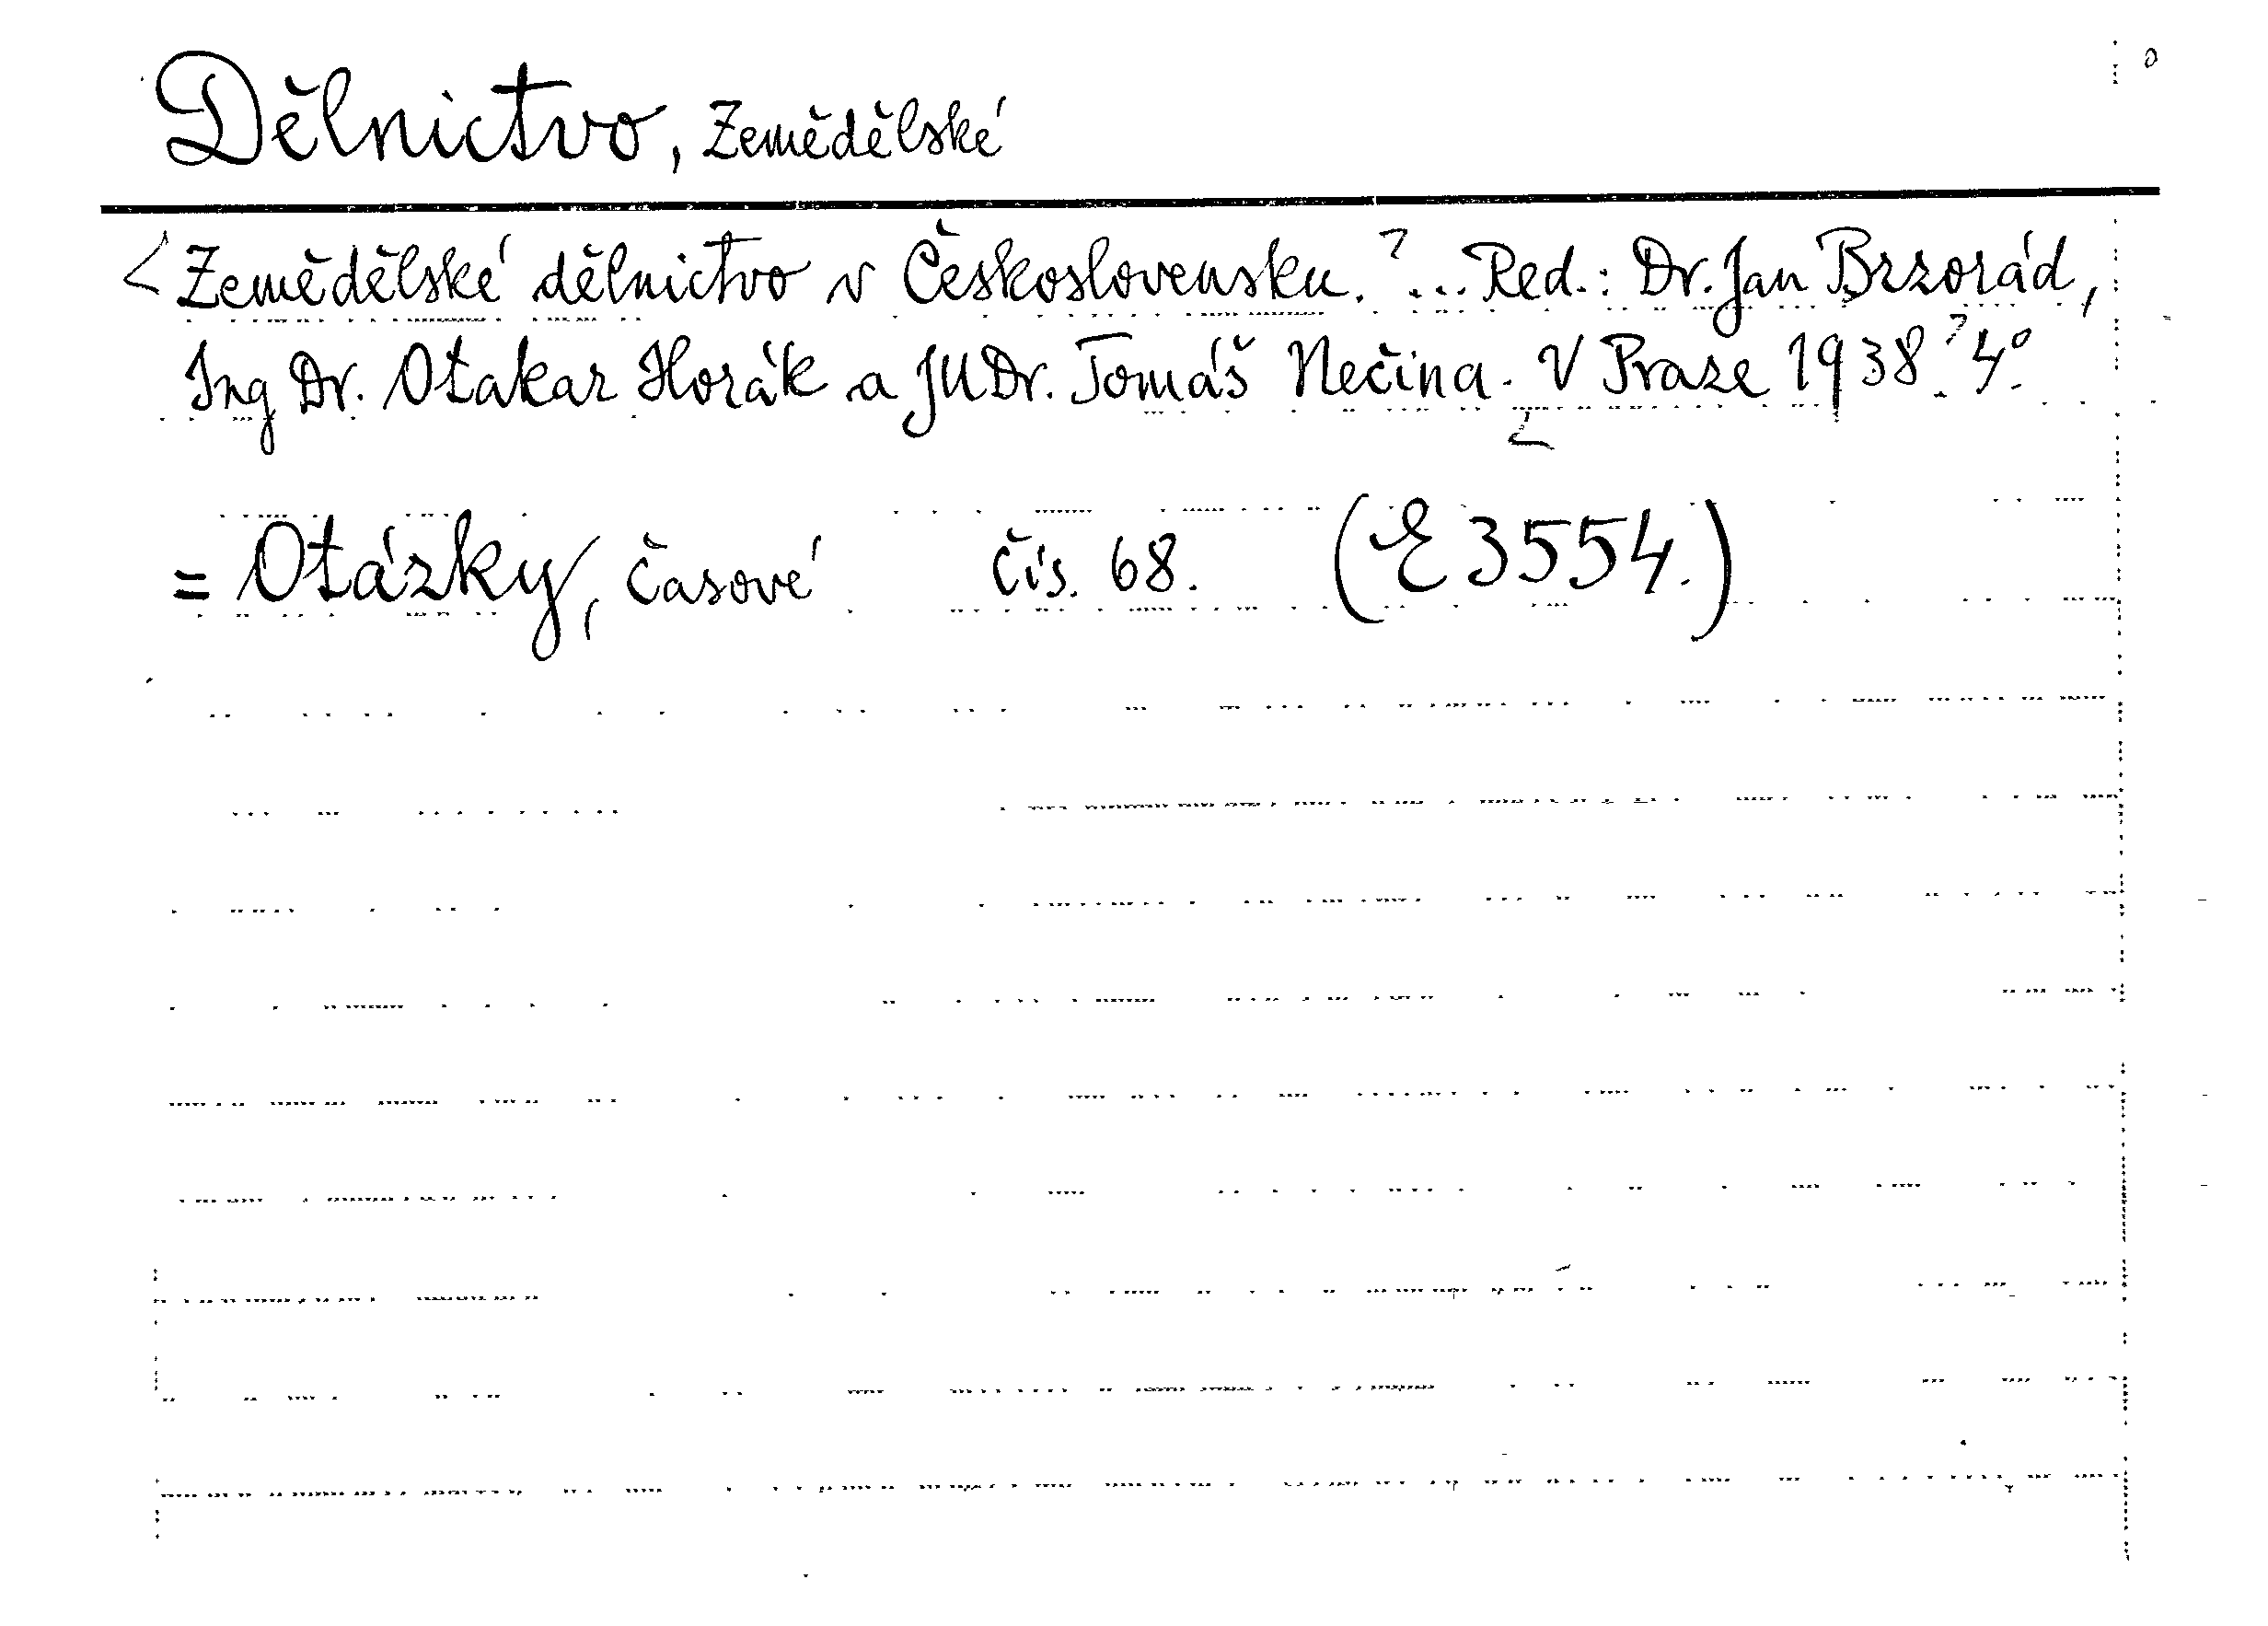 Dělnictvo, Zemědělské
Zemědělské dělnictvo v Československu. ... Red.: Dr. Jan Brzorád,
Ing Dr. Otakar Horák a JUDr. Tomáš Nečina. V Praze 1938. 4°.
= Otázky, časové čís. 68. (E 3554.)